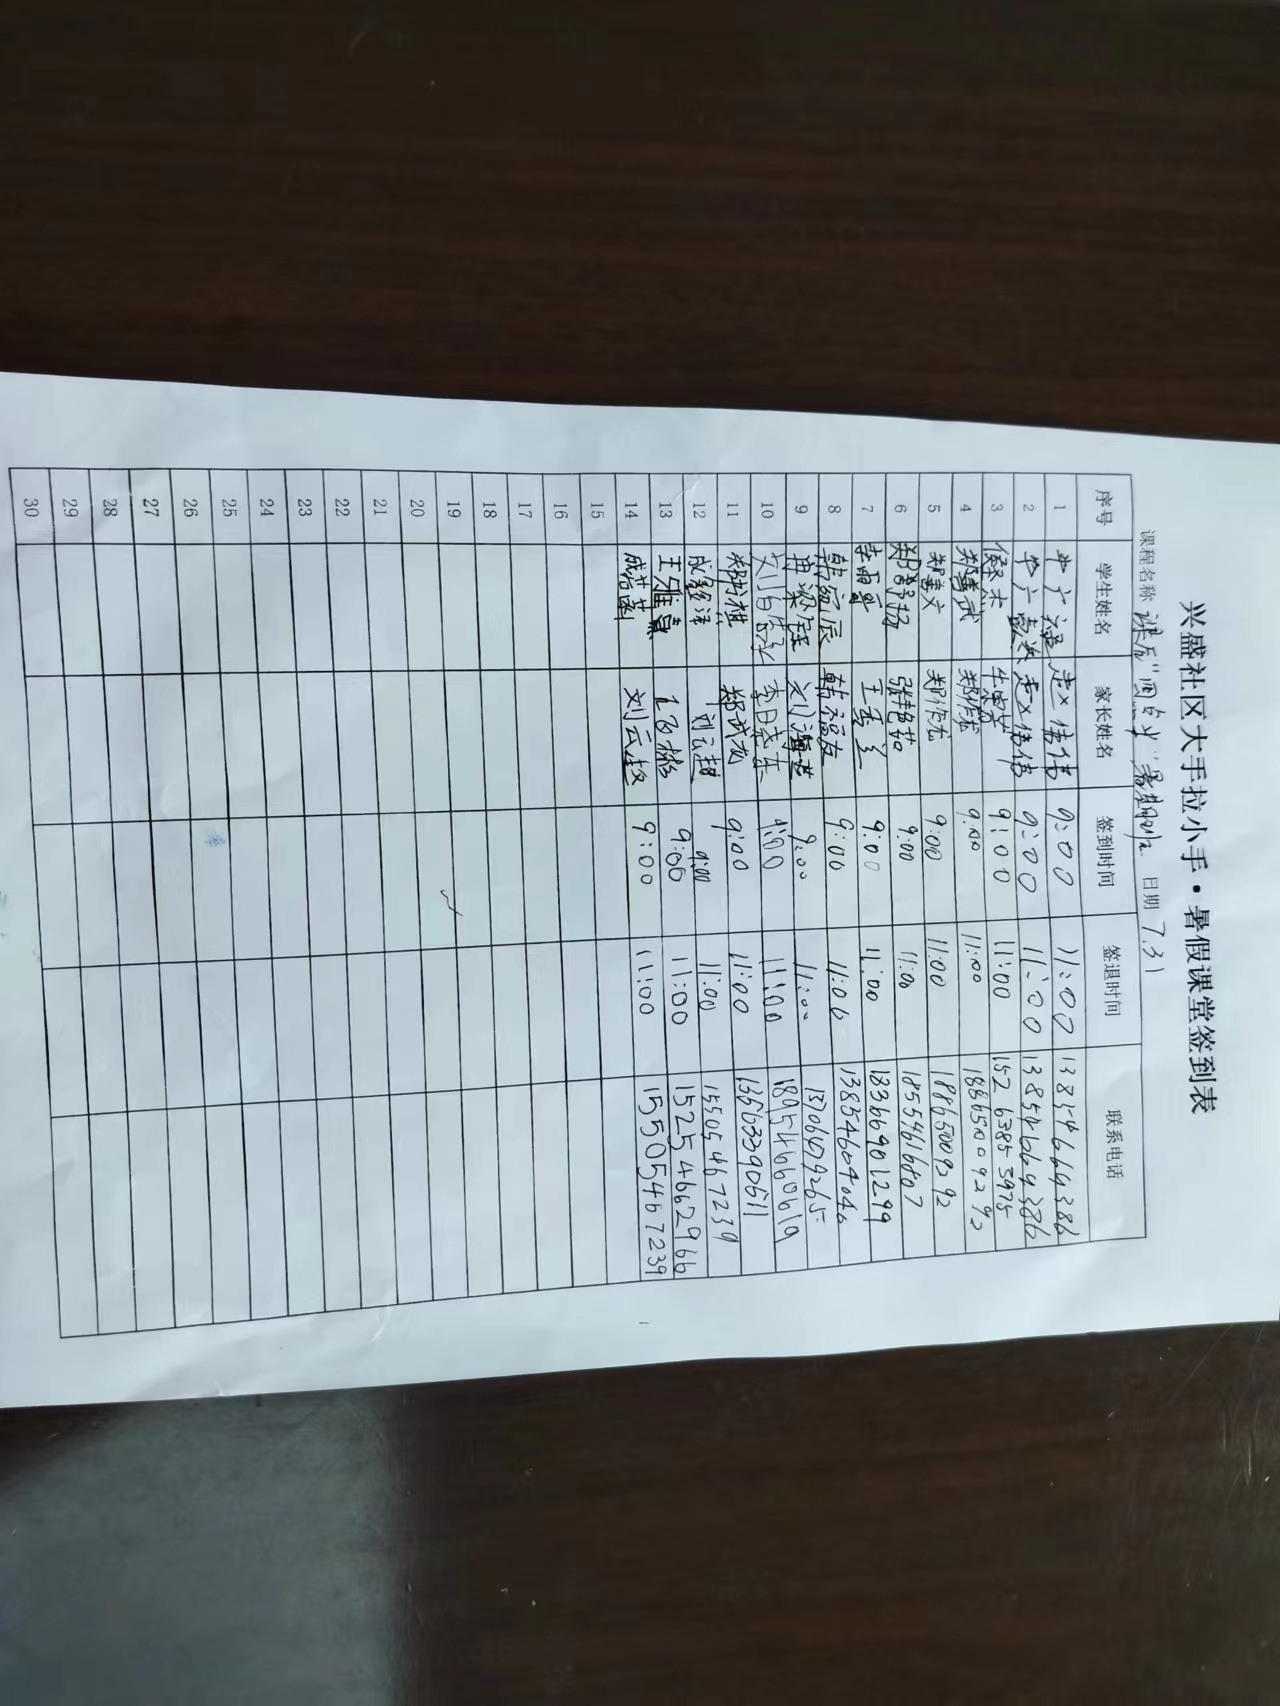 兴盛社区大手拉小手·暑假课堂签到表
课程名称 课后"四点半"暑期班 日期 7.31
序号 学生姓名 家长姓名 签到时间 签退时间 联系电话
1 9:00 11:00 13854664386
2 9:00 11:00 13854664386
3 9:00 11:00 15263853975
4 郑善武 郑作龙 9:00 11:00 18865009292
5 郑善文 郑作龙 9:00 11:00 18865009292
6 9:00 11:00 18554616807
7 李雨 王秀兰 9:00 11:00 18366901299
8 韩 辰 韩福友 9:00 11:00
9 刘海 9:00 11:00 13706479265
10 李日东 9:00 11:00 18954660619
11 郑 祺 郑武龙 9:00 11:00 13663390611
12 成 刘云超 9:00 11:00 15505467239
13 王雅 王 彬 9:00 11:00 15254662966
14 成若菡 刘云超 9:00 11:00 15505467239
15
16
17
18
19
20
21
22
23
24
25
26
27
28
29
30